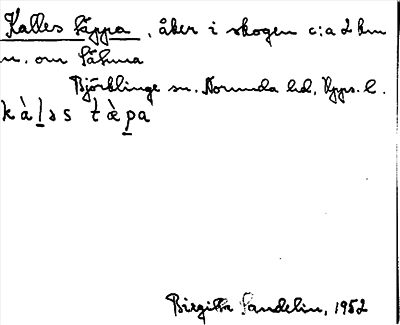 Kalles täppa, åker i skogen c:a 2 km
n. om
Björklinge sn. Norunda hd, Upps. l.
kàl̲əs tæ̀p̲a
Birgitta Sandelin, 1952